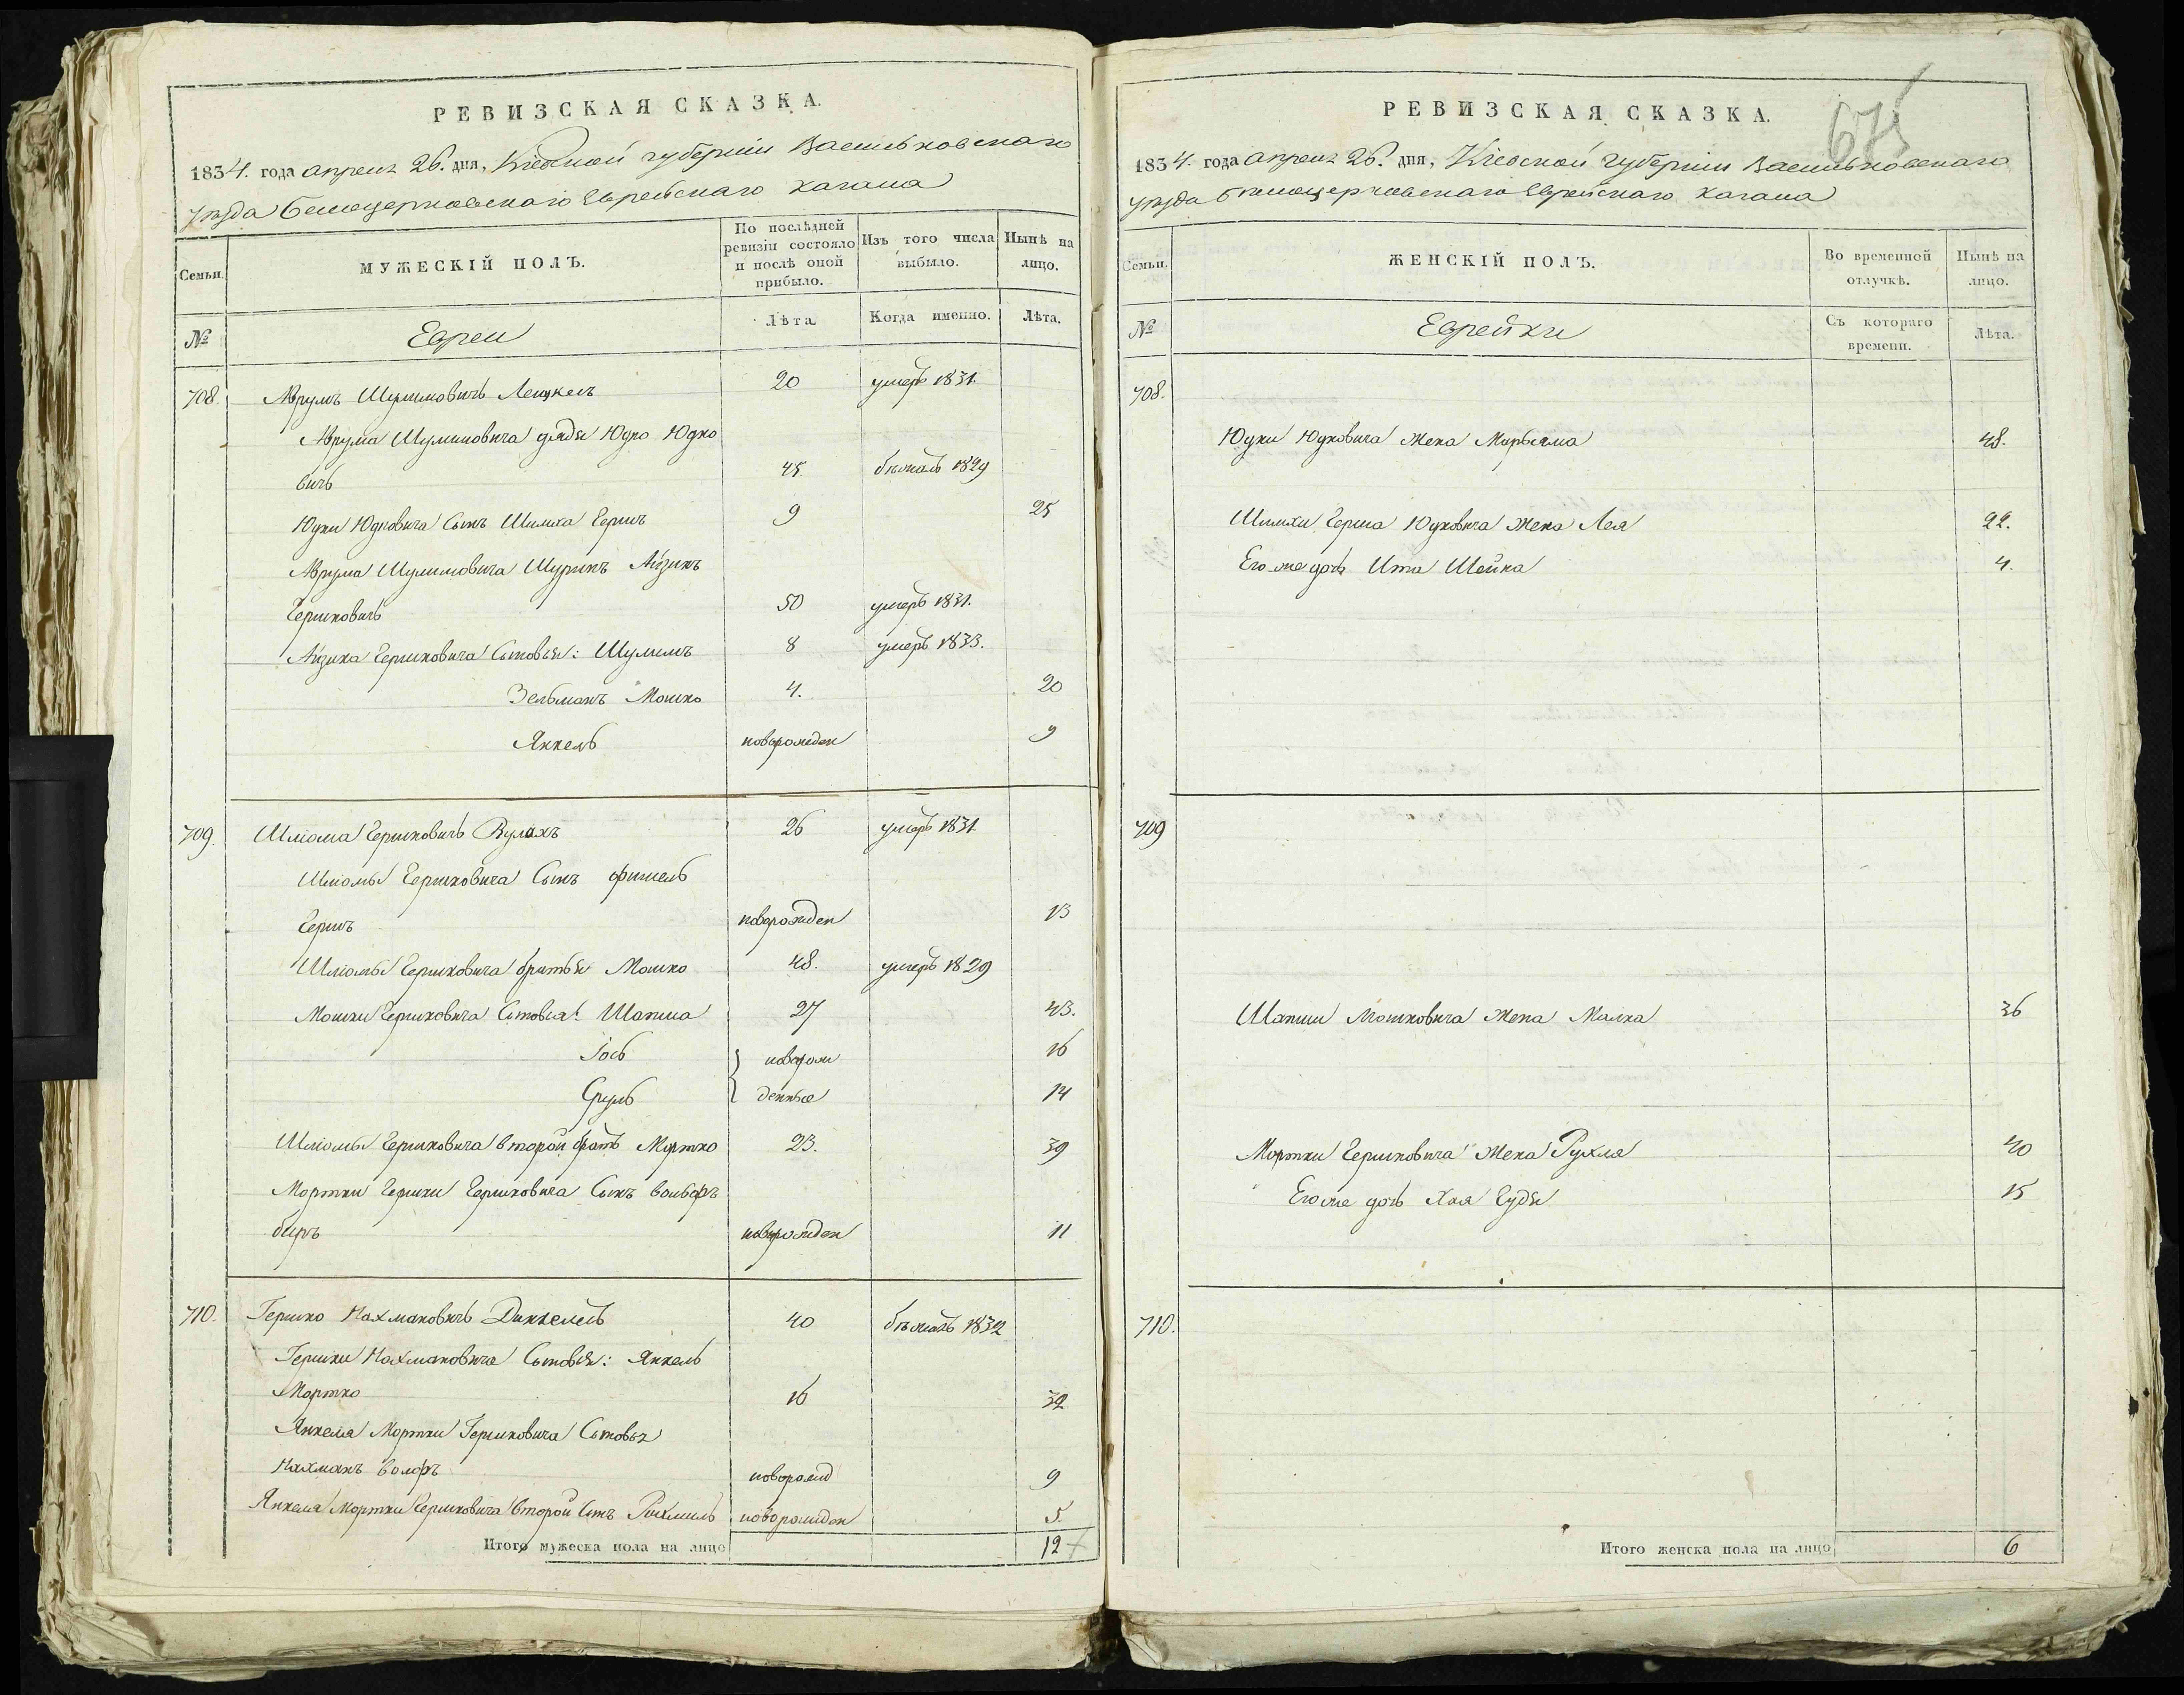 РЕВИЗСКАЯ СКАЗКА.
1834. года апреля 26. дня, Кіевской губерніи Васильковскаго
уезда Белоцерковскаго Еврейскаго кагала
Семьи.
МУЖЕСКІЙ ПОЛЪ.
По послѣдней ревизіи состояло и послѣ оной прибыло.
Изъ того числа выбыло.
Нынѣ на лицо.
№
Евреи
Лѣта
Когда именно.
Лѣта.
708. Аврумъ Шулимовичъ 20 умеръ 1831.
Аврума Шулимовича дядя Юдко Юдко
вичъ 45 бѣжалъ 1829
Юдки Юдковича Сынъ Шимха Гершъ 9 25
Аврума Шулимовича Шуринъ Айзикъ
Гершковичъ 50 умеръ 1831.
Айзика Гершковича Сыновья: Шулимъ 8 умеръ 1833.
Зельманъ Мошко 4. 20
Янкель новорожден 9
709. Шліома Гершковичъ Вулахъ 26 умеръ 1831
Шліомы Гершковича Сынъ Фишель
Гершъ новорожден 13
Шліомы Гершковича братья Мошко 48. умеръ 1829
Мошки Гершковича Сыновья: Шапша 27 43.
Іось новорож 16
Сруль денные 14
Шліомы Гершковича второй братъ Мортко 23. 39
Мортки Гершки Гершковича Сынъ Вольфъ
беръ новорожден 11
710. Гершко Нахмановичъ Динкелесъ 40 бѣжалъ 1832
Гершки Нахмановича Сыновья: Янкель
Мортко 16 32
Янкеля Мортки Гершковича Сыновья
Нахманъ Волфъ новорожд 9
Янкеля Мортки Гершковича Второй Сынъ Рахмиль новорожден 5.
Итого мужеска пола на лицо 12
РЕВИЗСКАЯ СКАЗКА.
675
1834. года апреля 26. дня, Кіевской губерніи Васильковскаго
уезда Белоцерковскаго Еврейскаго кагала
Семьи.
ЖЕНСКІЙ ПОЛЪ.
Во временной отлучкѣ.
Нынѣ на лицо.
№
Еврейки
Съ котораго времени.
Лѣта.
708.
Юдки Юдковича жена Марьяма 48.
Шимхи Герша Юдковича жена Лея 22.
Его же дочь Ита Шейна 4.
709
Шапши Мошковича жена Малка 36
Мортки Гершковича жена Рухля 40
Его же дочь Хая Гудя 15
710.
Итого женска пола на лицо 6